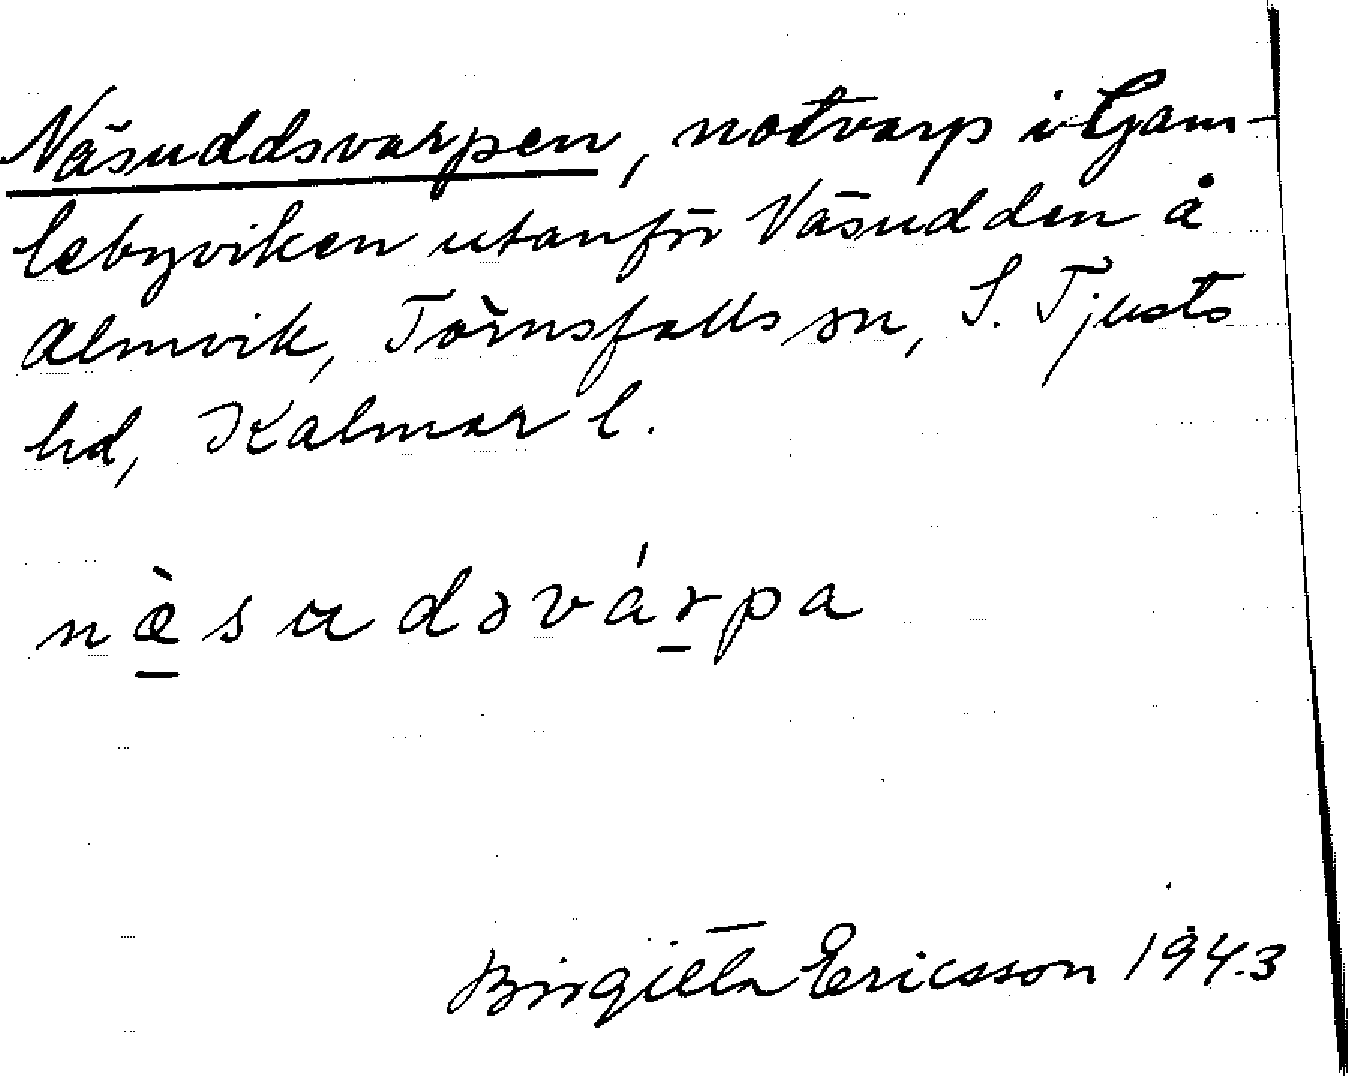 Näsuddsvarpen, notvarp i Gam-
lebyviken utanför Näsudden å
Almvik, Törnsfalls sn, S. Tjusts
hd, Kalmar l.
næ̀sudəvárpa
Birgitta Ericsson 1943